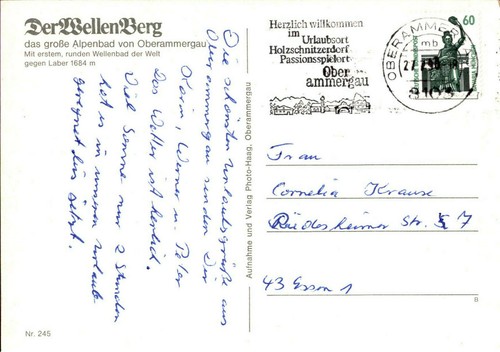 Der Wellen Berg
das große Alpenbad von Oberammergau
Mit erstem, runden Wellenbad der Welt
gegen Laber 1684 m
Die schönsten Urlaubsgrüße aus
Oberammergau senden Dir
Karin, Werner u. Peter
Das Wetter ist herrlich.
Viel Sonne nur 2 Stunden
hat es in unserem Urlaub
geregnet bis jetzt.
Nr. 245
Aufnahme und Verlag Photo-Haag, Oberammergau
Herzlich willkommen
im
Urlaubsort
Holzschnitzerdorf
Passionsspielort
Ober
ammergau
OBERAMMERGAU
mb
8103
60
Frau
Cornelia Krause
Str. 7
43 Essen 1
B